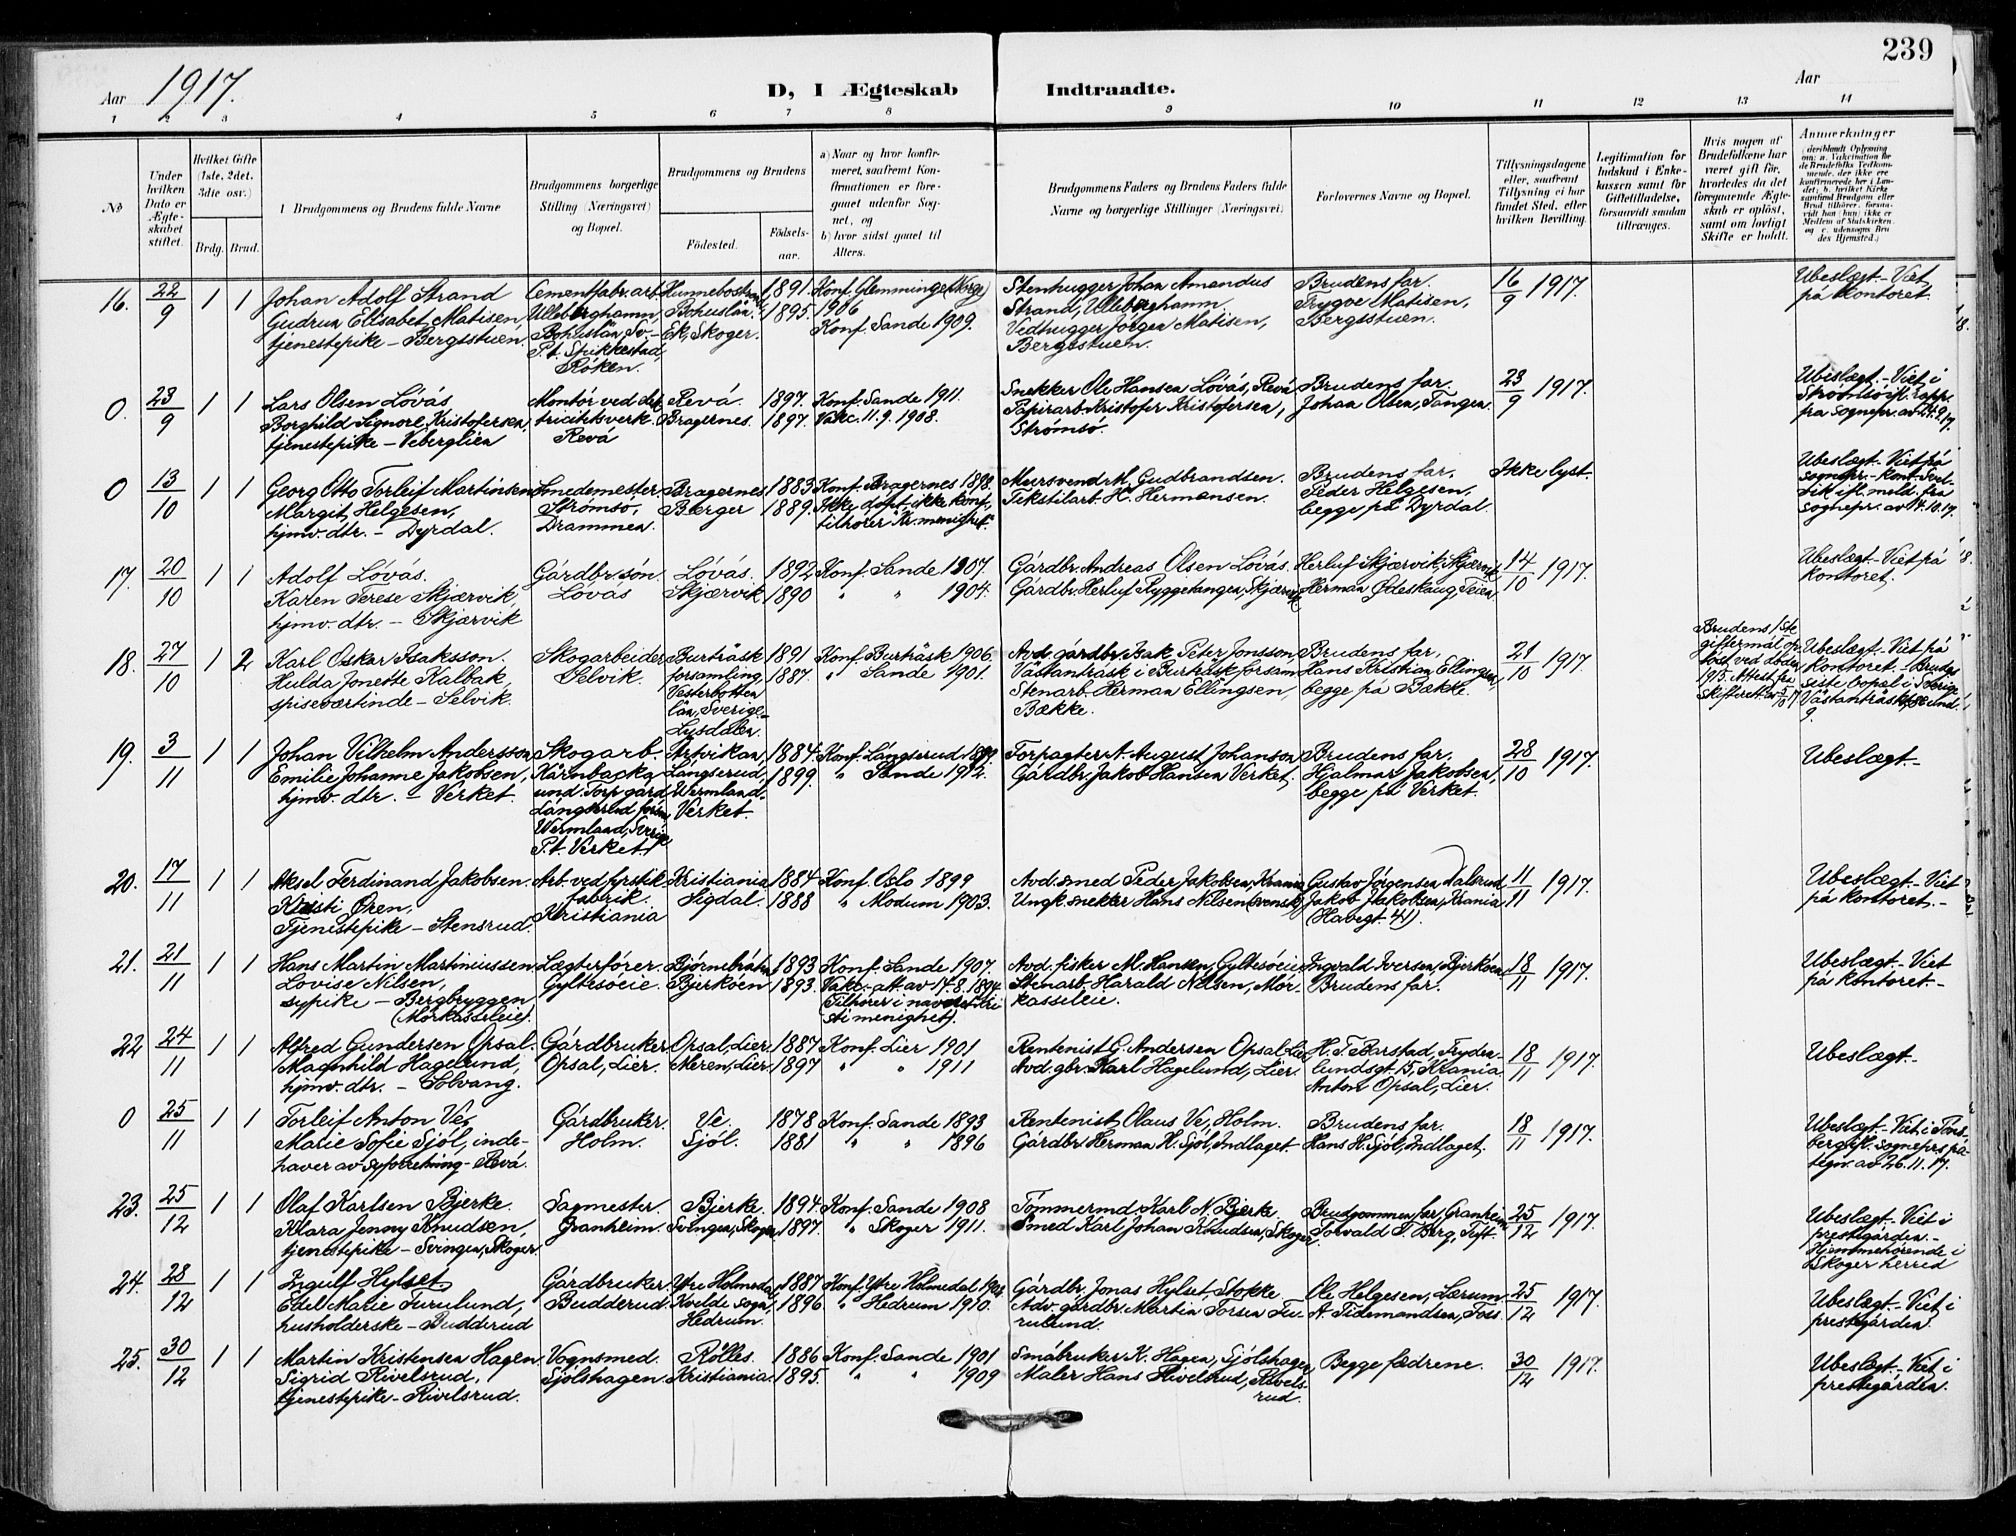 239
Aar 1917. D, I Ægteskab Indtraadte. Aar
1 2 3 4 5 6 7 8 9 10 11 12 13 14
No
Under hvilken Dato er Ægteskabet stiftet.
Hvilket Gifte (1ste, 2det, 3die osv.)
Brdg. Brud.
Brudgommens og Brudens fulde Navne
Brudgommens borgerlige Stilling (Næringsvei) og Bopæl.
Brudgommens og Brudens
Fødested.
Fødselsaar.
a) Naar og hvor konfirmeret, saafremt Konfirmationen er foregaaet udenfor Sognet, og
b) hvor sidst gaaet til Alters.
Brudgommens Faders og Brudens Faders fulde Navne og borgerlige Stillinger (Næringsvei)
Forlovernes Navne og Bopæl.
Tillysningsdagene eller, saafremt Tillysning ei har fundet Sted, efter hvilken Bevilling.
Legitimation for Indskud i Enkekassen samt for Giftetilladelse, forsaavidt saadan tiltrænges.
Hvis nogen af Brudefolkene har været gift før, hvorledes da det foregaaende Ægteskab er opløst, samt om lovligt Skifte er holdt.
Anmærkninger
16. 22/9 1 1
Johan Adolf Strand
Gudrun Elisabet Matisen,
tjenestepike – Bergsstuen.
Cementfabr.arb.
Ulleberghamn,
Bohuslän, Sv. –
P.t. Spikkestad,
Røken.
Hunnebostrand
Bohuslän.
Ek, Skoger.
1891.
1895.
Konf. Glemminge (Norge)
1906
Konf. Sande 1909.
Stenhugger Johan Amandus
Strand, Ulleberghamn.
Vedhugger Jørgen Matisen,
Bergsstuen.
Brudens far.
Trygve Matisen,
Bergsstuen.
16/9 1917.
Ubeslægt. – Viet
på kontoret.
0. 23/9 1 1
Lars Olsen Løvås
Borghild Signore Kristofersen,
tjenestepike – Veberglien
Montør ved elek
tricitetsverk.
Revå
Revå.
Bragernes.
1897.
1897.
Konf. Sande 1911.
Vakc. 11.9. 1908.
Snekker Ole Hansen Løvås, Revå
Papirarb. Kristofer Kristofersen,
Strømsø.
Brudens far.
Johan Olsen, Tangen.
23/9 1917.
Ubeslægt. – Viet i
Strømsø ifl. rapp.
fra sognepr. av 24.9.17.
0 13/10 1 1
Georg Otto Torleif Martinsen
Margit Helgesen,
hjmv. dtr. – Dyrdal.
Smedemester
Strømsø,
Drammen.
Bragernes
Berger
1883
1889.
Konf. Bragernes 1898.
Ikke døpt, ikke konf.,
tilhører Kr. menighet.
Mursvend M. Gudbrandsen.
Tekstilarb. H. Hermansen.
Brudens far.
Peder Helgesen,
begge på Dyrdal.
Ikke lyst.
Ubeslægt. – Viet på
sognepr. kont. Svel-
vik ifl. meld. fra
sognepr. av 14.10.17.
17. 20/10 1 1
Adolf Løvås.
Karen Terese Skjærvik,
hjmv. dtr. – Skjærvik
Gårdbr.søn.
Løvås
Løvås.
Skjærvik
1892
1890
Konf. Sande 1907.
" " 1904.
Gårdbr. Andreas Olsen Løvås.
Gårdbr. Herluf Ryggetangen, Skjærvik,
Herluf Skjærvik, Skjærvik
Herman Ødeskaug, Teien,
14/10 1917.
Ubeslægt – Viet på
kontoret.
18. 27/10 1 2
Karl Oskar Isaksson.
Hulda Jonette Kalbak,
spiseværtinde – Selvik.
Skogarbeider
Selvik.
Burträsk
forsamling,
Vesterbotten
län, Sverige. –
Lysdalen.
1891
1887.
Konf. Burträsk 1906.
" Sande 1901.
Avd. gårdbr. Isak Peter Jonsson,
Västanträsk i Burträsk forsam.
Stenarb. Herman Ellingsen,
Bække.
Brudens far.
Hans Kristian Ellingsen,
begge på Bække.
21/10 1917.
Brudens 1ste
giftermål op-
løst ved døden
1915. Attest fra
skifterett av 5/10 17
Ubeslægt. – Viet på
kontoret. – Brudgs
siste bopæl i Sverige
Västanträsk,
9.
19. 3/11 1 1
Johan Vilhelm Andersson
Emilie Johanne Jakobsen,
hjmv. dtr. – Verket.
Skogarb.
Kärnbacka
und. Torp gård
Långserud förs.
Wermland, Sverige
P.t. Verket.
Arfvikan,
Långserud,
Wermland.
Verket.
1884.
1899.
Konf. Långserud 1899.
" Sande 1912.
Torpagter A. August Johanson
Gårdbr. Jakob Hansen Verket.
Brudens far.
Hjalmar Jakobsen,
begge på Verket.
28/10 1917.
Ubeslægt. –
20. 17/11 1 1
Aksel Ferdinand Jakobsen.
Kristi Øren,
Tjenestepike – Stensrud.
Arb. ved fyrstik
fabrik.
Kristiania
Kristiania
Sigdal.
1884
1888
Konf. Oslo 1899
" Modum 1903.
Avd. smed Peder Jakobsen, Krania
Ungk. snekker Hans Nilsen (svensk)
Gustav Jørgensen Dalsrud
Jakob Jakobsen, Krania
(Havegt. 41).
11/11 1917.
Ubeslægt. – Viet
på kontoret. –
21. 21/11 1 1
Hans Martin Martiniussen
Lovise Nilsen,
sypike – Bergbryggen
(Mørkassleie).
Lægterfører.
Gyltesøeie.
Bjørnebråten
Bjerkøen
1893
1893.
Konf. Sande 1907.
Vakc.-att. av 14.8.1894.
Tilhører i navnet fri
menighet).
Avd. fisker M. Hansen, Gyltesøeie
Stenarb. Harald Nilsen, Mør-
kasseleie.
Ingvald Iversen, Bjerkøen
Brudens far.
18/11 1917.
Ubeslægt. – Viet
på kontoret –
22 24/11 1 1
Alfred Gundersen Opsal.
Magnhild Hagelund,
hjmv. dtr. – Solvang.
Gårdbruker.
Opsal, Lier.
Opsal, Lier.
Meren, Lier.
1887
1897
Konf. Lier 1901
" " 1911
Rentenist G. Andersen Opsal, Lier
Avd. gbr. Karl Hagelund, Lier.
H. T. Barstad, Fryden-
lundsgt. 15, Krania.
Anton Opsal, Lier.
18/11 1917.
Ubeslægt. –
0 25/11 1 1
Torleif Anton Ve,
Marie Sofie Sjøl, inde-
haver av syforretning – Revå.
Gårdbruker.
Holm.
Ve.
Sjøl.
1878
1881
Konf. Sande 1893
" " 1896
Rentenist Olaus Ve, Holm.
Gårdbr. Herman H. Sjøl, Indlaget.
Brudens far.
Hans H. Sjøl, Indlaget.
18/11 1917.
Ubeslægt. – Viet i Tøns-
berg ifl. sognepr.s på-
tegn. av 26.11.17.
23. 25/12 1 1
Olaf Karlsen Bjerke.
Klara Jenny Knudsen,
tjenestepike – Svingen, Skoger.
Sagmester.
Granheim.
Bjerke.
Svingen, Skoger
1894.
1897.
Konf. Sande 1908
" Skoger 1911.
Tømmermd. Karl N. Bjerke.
Smed Karl Johan Knudsen, Skoger.
Brudgommens far, Granheim
Torvald T. Berg, Tuft.
25/12 1917.
Ubeslægt. – Viet i
prestegården. –
Hjemmehørende i
Skoger herred
24. 28/12 1 1
Ingulf Hylset
Edel Marie Furulund,
husholderske – Budderud
Gårdbruker.
Budderud.
Ytre Holmedal
Kvelde sogn,
Hedrum.
1887
1896
Konf. Ytre Holmedal
" Hedrum 1910.
Gårdbr. Jonas Hylset, Stokke
Adv. gårdbr. Martin Torsen Fu-
rulund.
Ole Helgesen, Lærum.
A. Tidemandsen, Foss.
25/12 1917.
Ubeslægt. – Viet i
prestgården.
25. 30/12 1 1
Martin Kristensen Hagen.
Sigrid Rivelsrud,
tjenestepike – Rivelsrud.
Vognsmed.
Sjølshagen.
Rølles.
Kristiania.
1886
1895.
Konf. Sande 1901
" " 1909
Småbruker K. Hagen, Sjølshagen
Maler Hans Rivelsrud, Rivels-
rud.
Begge fædrene.
30/12 1917.
Ubeslægt. – Viet i
prestegården.